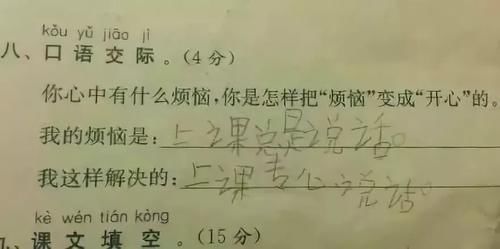 kǒu yǔ jiāo jì
八、口语交际。(4分)
你心中有什么烦恼,你是怎样把“烦恼”变成“开心”的。
我的烦恼是:上课总是说话。
我这样解决的:上课专心说话。
kè wén tián kòng
九、课文填空。(15分)